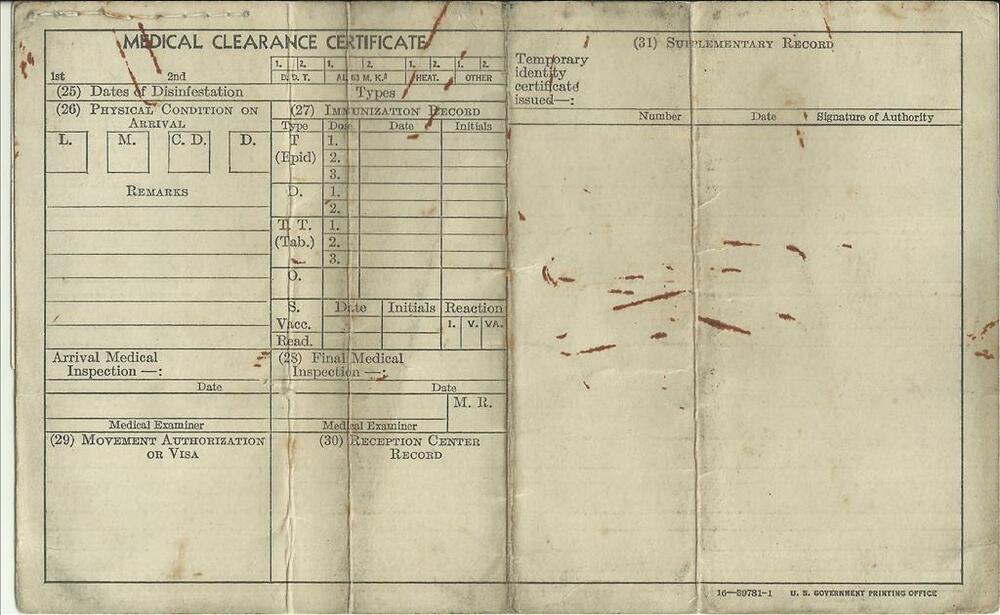 MEDICAL CLEARANCE CERTIFICATE
1. 2. 1. 2. 1. 2. 1. 2.
1st 2nd D. D. T. AL 63 M. K.³ HEAT. OTHER
(25) Dates of Disinfestation Types
(26) PHYSICAL CONDITION ON
ARRIVAL
L. M. C. D. D.
REMARKS
(27) IMMUNIZATION RECORD
Type Dose Date Initials
T 1.
(Epid) 2.
3.
D. 1.
2.
T. T. 1.
(Tab.) 2.
3.
O.
S. Date Initials Reaction
Vacc. I. V. VA.
Read.
Arrival Medical
Inspection —:
Date
Medical Examiner
(28) Final Medical
Inspection —:
Date
M. R.
Medical Examiner
(29) MOVEMENT AUTHORIZATION
OR VISA
(30) RECEPTION CENTER
RECORD
(31) SUPPLEMENTARY RECORD
Temporary
identity
certificate
issued—:
Number Date Signature of Authority
16—39781-1 U. S. GOVERNMENT PRINTING OFFICE